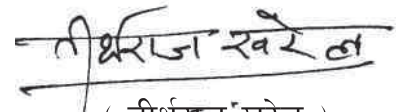 तीर्थराज खरेल